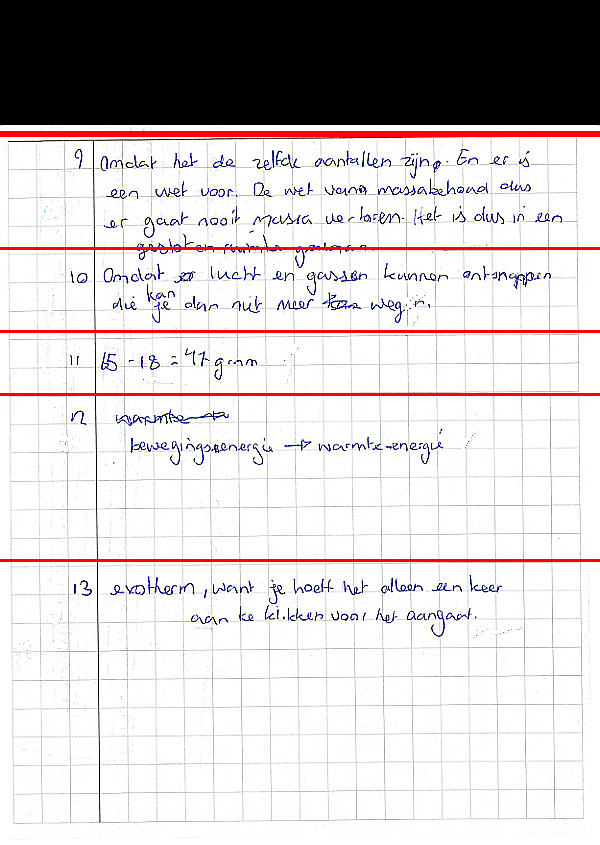 9 Omdat het de zelfde aantallen zijn. En er is
een wet voor. De wet van massabehoud dus
er gaat nooit massa verloren. Het is dus in een
gesloten ruimte
10 Omdat lucht en gassen kunnen ontsnappen
die kan je dan niet meer wegen.
11 65 - 18 = 47 gram
12 warmte
bewegingsenergie → warmte-energie
13 exotherm, want je hoeft het alleen een keer
aan te klikken voor het aangaat.